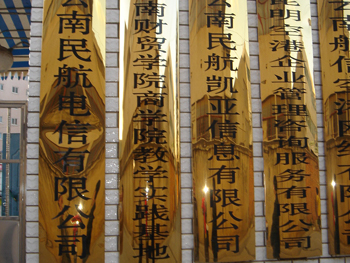 云南民航电信有限公司
云南财贸学院商学院教学实践基地
云南民航凯亚信息有限公司
昆明空港企业管理咨询服务有限公司